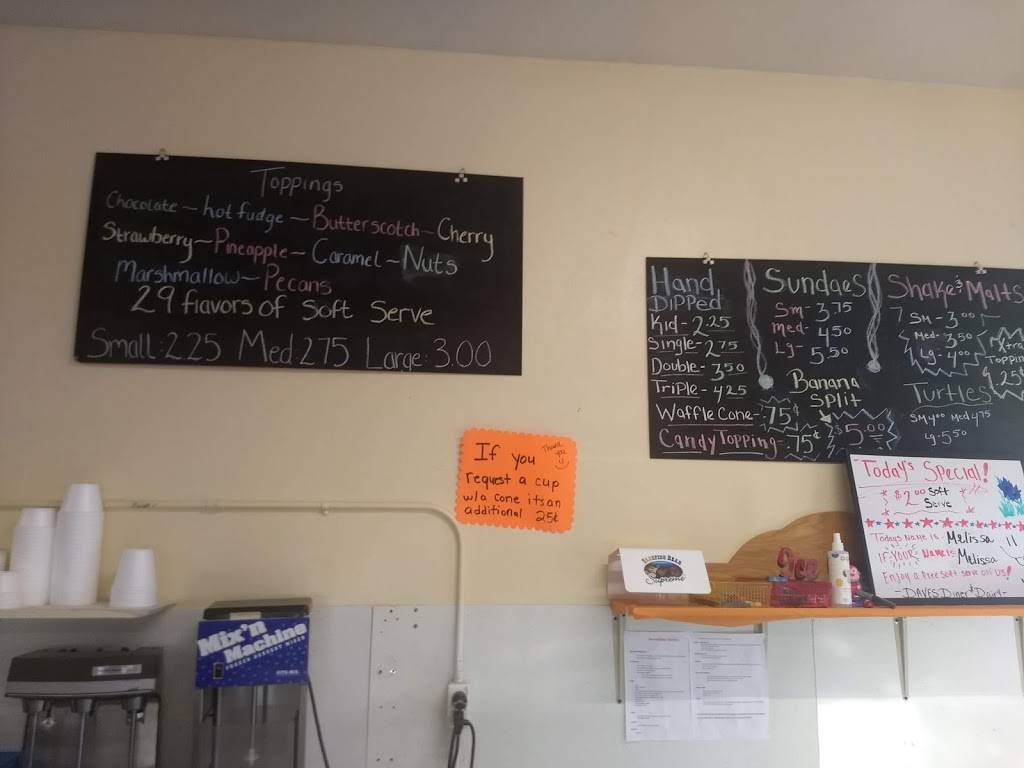 Toppings
Chocolate ~ hot fudge ~ Butterscotch ~ Cherry
Strawberry ~ Pineapple ~ Caramel ~ Nuts
Marshmallow ~ Pecans
29 flavors of Soft Serve
Small: 2.25 Med: 2.75 Large: 3.00
Hand
Dipped
Kid - 2.25
Single - 2.75
Double - 3.50
Triple - 4.25
Waffle Cone - .75¢
Candy Topping - .75¢
Sundaes
Sm - 3.75
med - 4.50
Lg - 5.50
Banana
Split
$5.00
Shake & Malts
Sm - 3.00
Med - 3.50
Lg - 4.00
Turtles
Sm 4.00 Med 4.75
Lg 5.50
If you
request a cup
w/a cone its an
additional 25¢
Thank
you
Today's Special!
$2.00 Soft
Serve
Todays Name is - Melissa
If YOUR Name is Melissa
Enjoy a free soft serve on us!
- DAVES Diner & Dairy -
Supreme
Mix'n
Machine